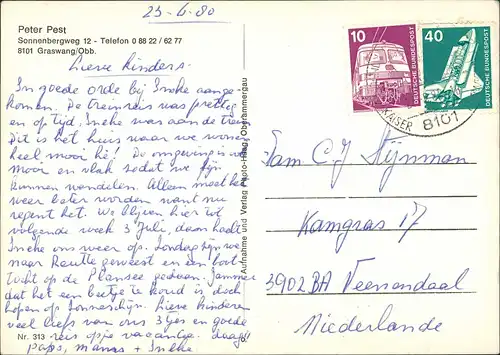 23-6-80
Peter Pest
Sonnenbergweg 12 - Telefon 0 88 22 / 62 77
8101 Graswang/Obb.
Lieve kinders.
In goede orde bij Ineke aange-
komen. De treinreis was prettig
en op tijd. Ineke was aan de trein
Dit is het huis waar we wonen
heel mooi hè! De omgeving is
mooi en vlak zodat we fijn
kunnen wandelen. Alleen moet het
weer beter worden want nu
regent het. We blijven hier tot
volgende week 3 Juli, dan haalt
Ineke ons weer op. Zondag zijn we
naar Reutte geweest en een boot
tocht op de Plansee gedaan. Jammer
dat het een beetje te koud is doch
hopen op zonneschijn. Lieve kinderen
veel liefs van ons 3tjes en goede
reis op je vacantie. daag!
paps, mams + Ineke
Nr. 313
Aufnahme und Verlag Photo-Haag, Oberammergau
10
DEUTSCHE BUNDESPOST
40
DEUTSCHE BUNDESPOST
KAISER
8101
Fam C J Stijnman
Kamgras 17
3902 BA Veenendaal
Niederlande